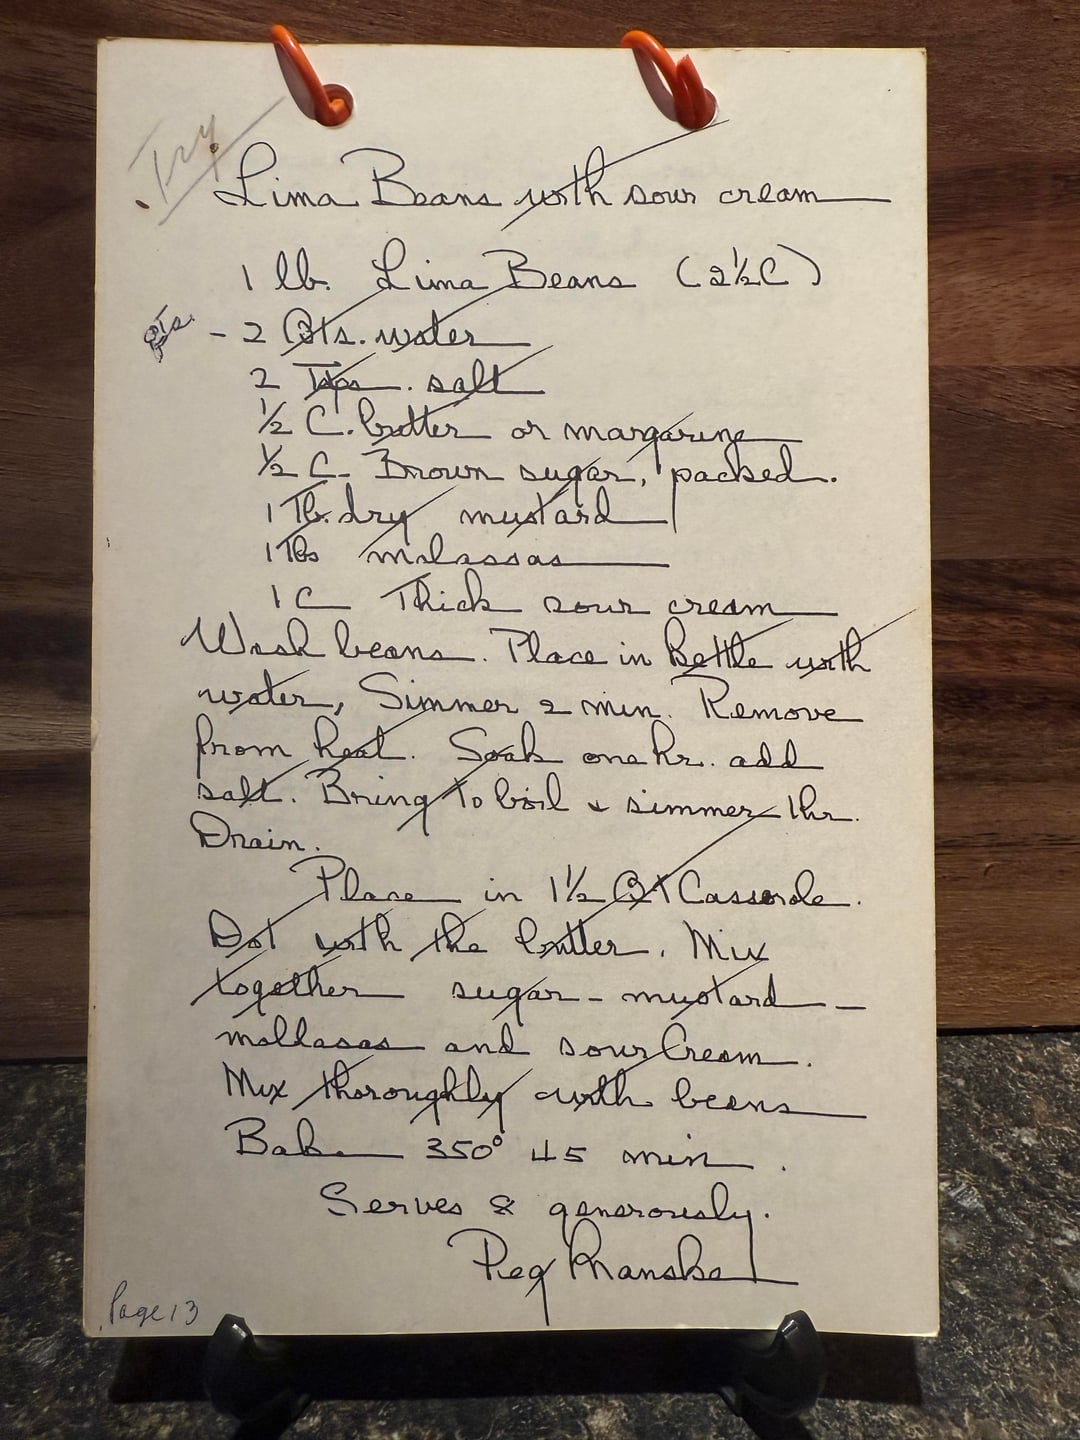 Try
Lima Beans with sour cream
1 lb. Lima Beans (2½C)
Qts. - 2 Qts. water
2 Tsps. salt
½ C. butter or margarine
½ C. Brown sugar, packed.
1 Tb. dry mustard
1 Tbs molassas
1 C Thick sour cream
Wash beans. Place in kettle with
water, Simmer 2 min. Remove
from heat. Soak one hr. add
salt. Bring to boil & simmer 1 hr.
Drain.
Place in 1½ Qt Casserole.
Dot with the butter. Mix
together sugar - mustard -
mollasas and sour Cream.
Mix thoroughly with beans
Bake 350° 45 min.
Serves 8 generously.
Peg
Page 13